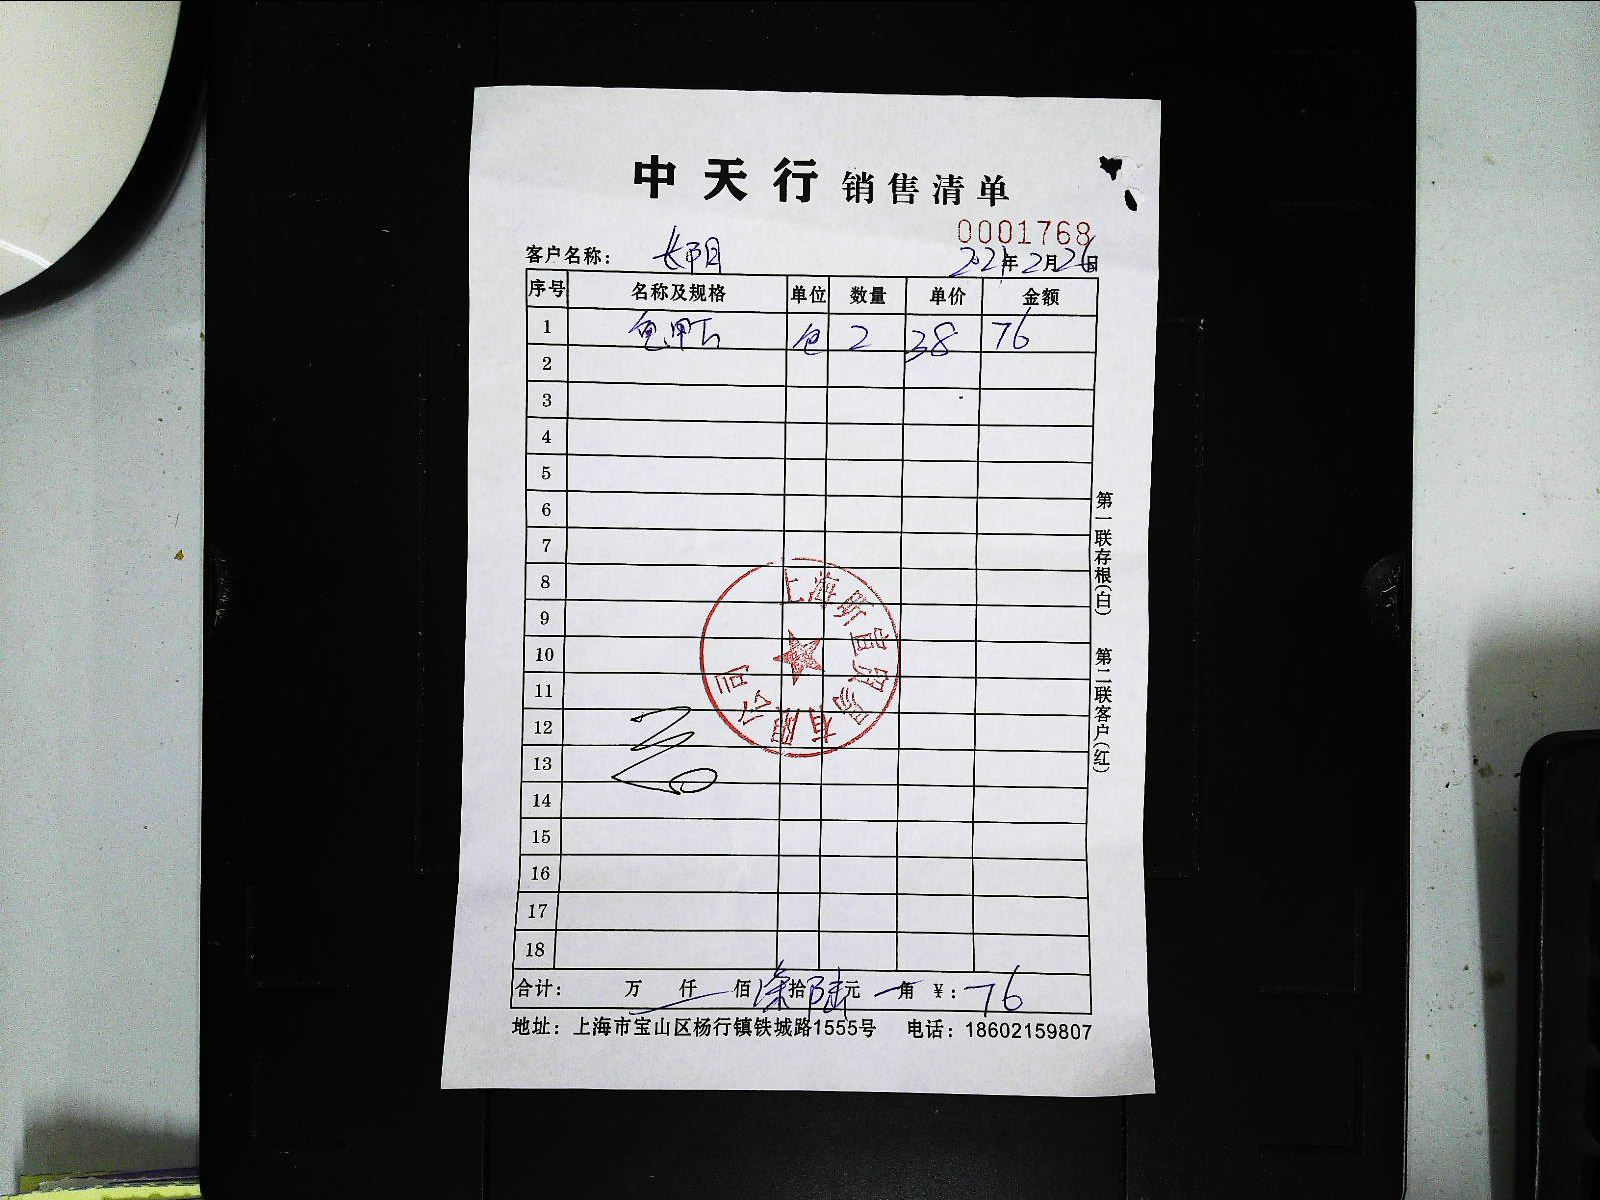 中天行 销售清单
0001768
客户名称： 长阳 2021年2月26日
序号 名称及规格 单位 数量 单价 金额
1 包 2 38 76
2
3
4
5
6
7
8
9
10
11
12
13
14
15
16
17
18
合计： 万 仟 佰 柒拾 陆元 角 ¥：76
地址：上海市宝山区杨行镇铁城路1555号 电话：18602159807
第一联存根(白) 第二联客户(红)
上海 宜贸易有限公司